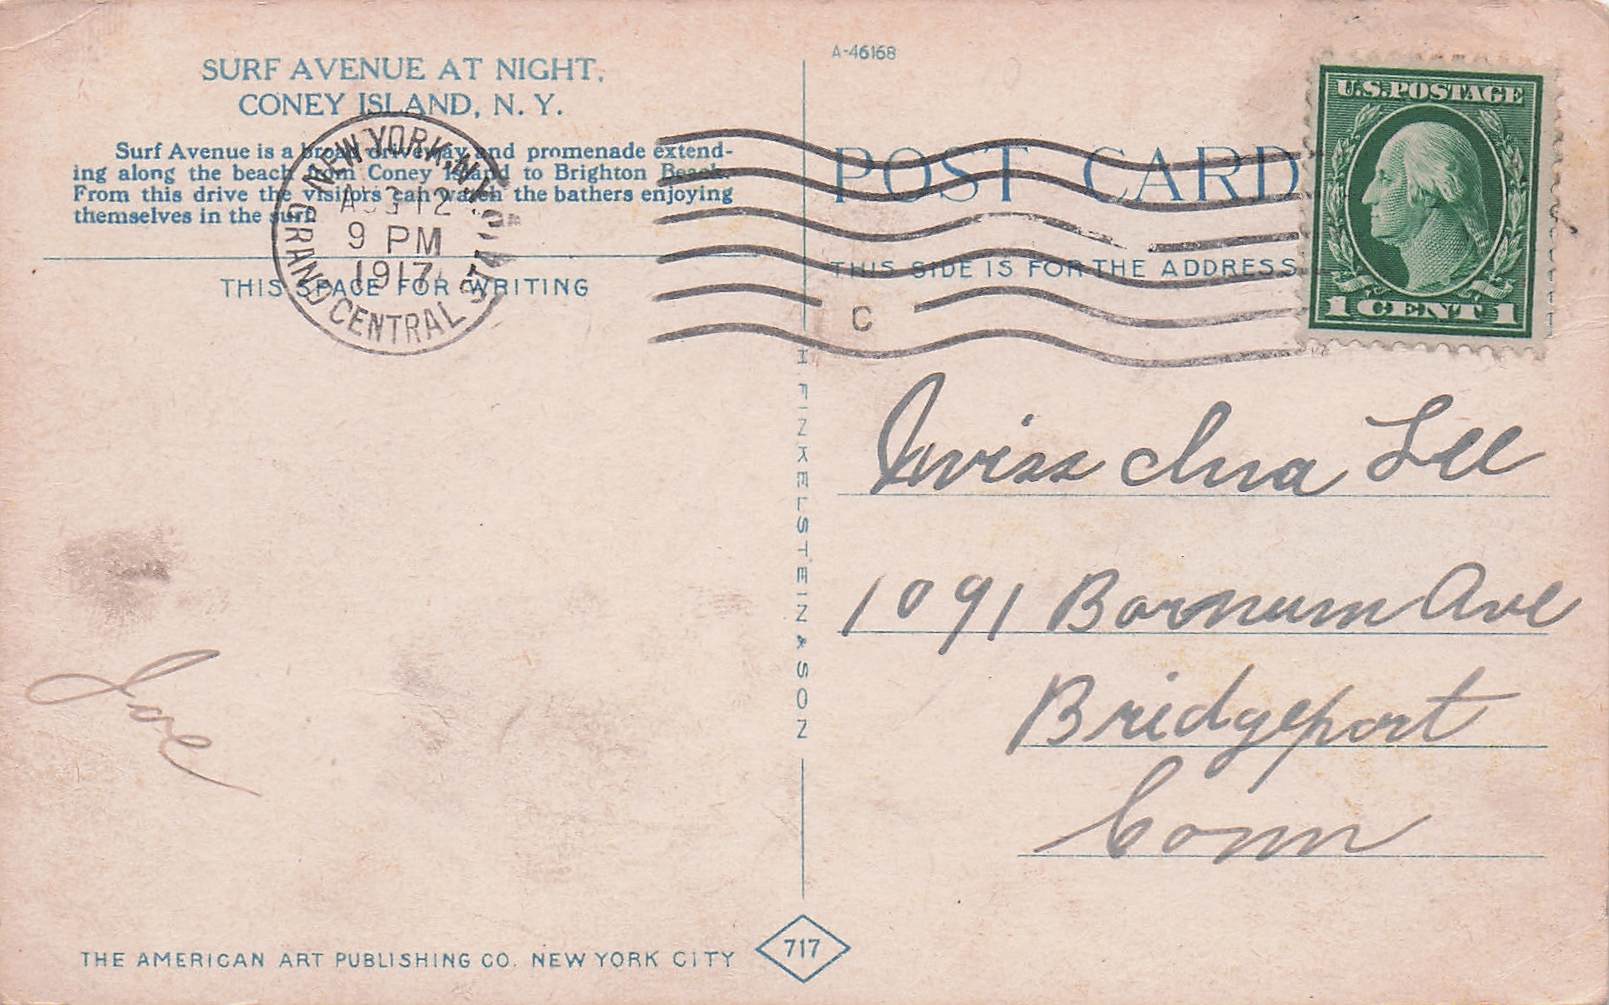 SURF AVENUE AT NIGHT,
CONEY ISLAND, N. Y.
Surf Avenue is a broad driveway and promenade extend-
ing along the beach from Coney Island to Brighton Beach.
From this drive the visitors can watch the bathers enjoying
themselves in the surf.
NEW YORK, N.Y.
GRAND CENTRAL
AUG 12
9 PM
1917
THIS SPACE FOR WRITING
Joe
THE AMERICAN ART PUBLISHING CO. NEW YORK CITY
717
H FINKELSTEIN & SON
A-46168
POST CARD
THIS SIDE IS FOR THE ADDRESS
C
U.S. POSTAGE
1 CENT 1
Miss Ina Lee
1091 Barnum Ave
Bridgeport
Conn